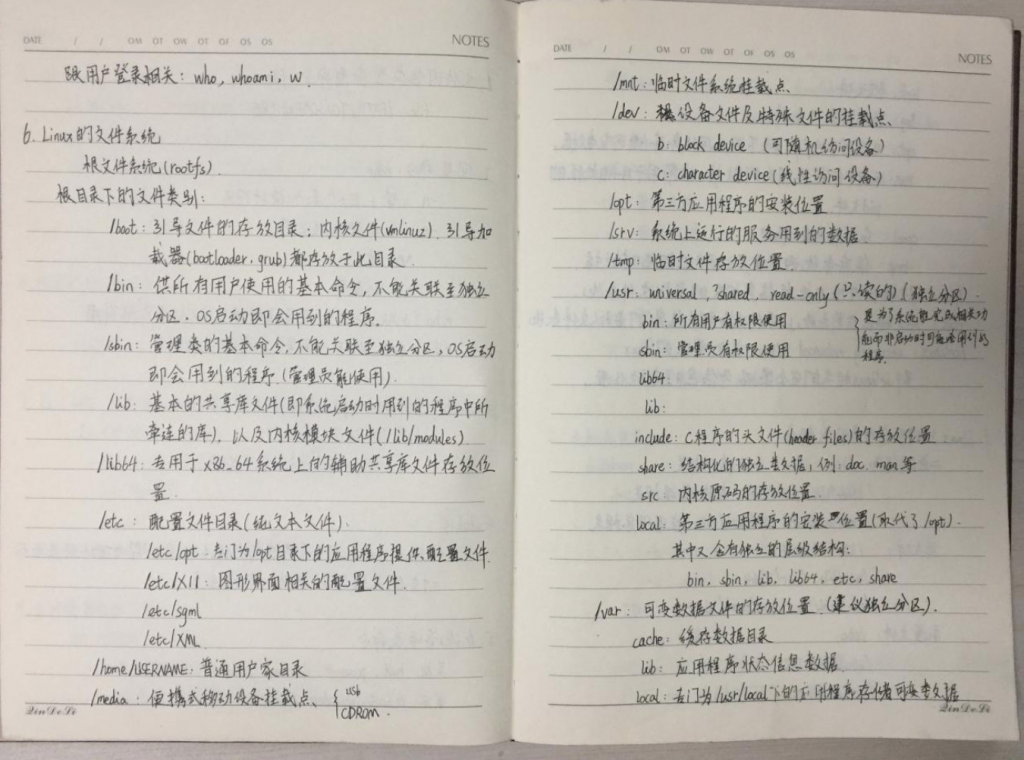 DATE / / OM OT OW OT OF OS OS NOTES
跟用户登录相关：who, whoami, w.
6. Linux的文件系统
根文件系统(rootfs).
根目录下的文件类别：
/boot：引导文件的存放目录；内核文件(vmlinuz). 引导加
载器(bootloader, grub)都存放于此目录
/bin：供所有用户使用的基本命令, 不能关联至独立
分区. OS启动即会用到的程序.
/sbin：管理类的基本命令, 不能关联至独立分区, OS启动
即会用到的程序. (管理员能使用).
/lib：基本的共享库文件(即系统启动时用到的程序中所
牵连的库). 以及内核模块文件(/lib/modules)
/lib64：专用于x86_64系统上的辅助共享库文件存放位
置.
/etc：配置文件目录(纯文本文件).
/etc/opt：专门为/opt目录下的应用程序提供配置文件
/etc/X11：图形界面相关的配置文件.
/etc/sgml
/etc/XML
/home/USERNAME：普通用户家目录
/media：便携式移动设备挂载点、 { usb
CDROM.
QinDeLi
DATE / / OM OT OW OT OF OS OS NOTES
/mnt：临时文件系统挂载点
/dev：设备文件及特殊文件的挂载点、
b：block device (可随机访问设备)
c：character device (线性访问设备)
/opt：第三方应用程序的安装位置
/srv：系统上运行的服务用到的数据
/tmp：临时文件存放位置.
/usr：universal, ?shared, read-only (只读的) (独立分区).
bin：所有用户有权限使用 } 是为了系统能完成相关功
sbin：管理员有权限使用 能而非启动时可能会用到的
程序.
lib64
lib：
include：C程序的头文件(header files)的存放位置
share：结构化的独立类数据, 例：doc, man等
src 内核原码的存放位置.
local：第三方应用程序的安装位置(取代了/opt).
其中又会有独立的层级结构：
bin, sbin, lib, lib64, etc, share
/var：可变数据文件的存放位置. (建议独立分区).
cache：缓存数据目录
lib：应用程序状态信息数据
local：专门为/usr/local下的应用程序存储可变类数据
QinDeLi